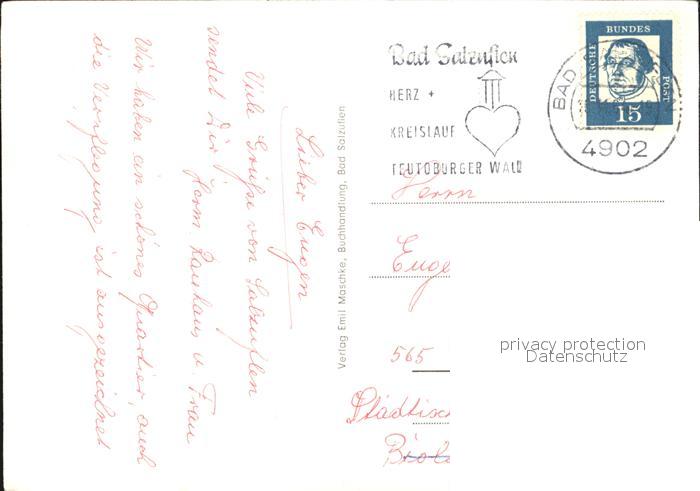 Lieber Eugen
Viele Grüße von Salzuflen
sendet Dir Herm. Rauhaus u. Frau
Wir haben ein schönes Quartier, auch
die Verpflegung ist ausgezeichnet
Verlag Emil Maschke, Buchhandlung, Bad Salzuflen
Bad Salzuflen
HERZ +
KREISLAUF
TEUTOBURGER WALD
BAD
4902
DEUTSCHE BUNDES POST
15
Herrn
Euge
565
Städtisc
privacy protection
Datenschutz